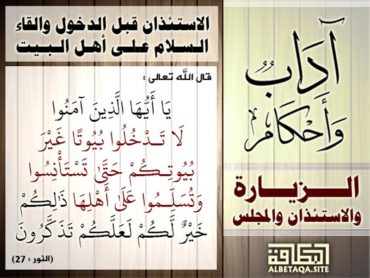 آدَابٌ
وَأَحْكَام
الـزيـارة
والاستئذان والمجلس
البطاقة
ALBETAQA.SITE
الاستئذان قبل الدخول والقاء
السلام على أهل البيت
قال الله تعالى :
يَا أَيُّهَا الَّذِينَ آمَنُوا
لَا تَدْخُلُوا بُيُوتًا غَيْرَ
بُيُوتِكُمْ حَتَّىٰ تَسْتَأْنِسُوا
وَتُسَلِّمُوا عَلَىٰ أَهْلِهَا ذَلِكُمْ
خَيْرٌ لَّكُمْ لَعَلَّكُمْ تَذَكَّرُونَ
(النور : 27)